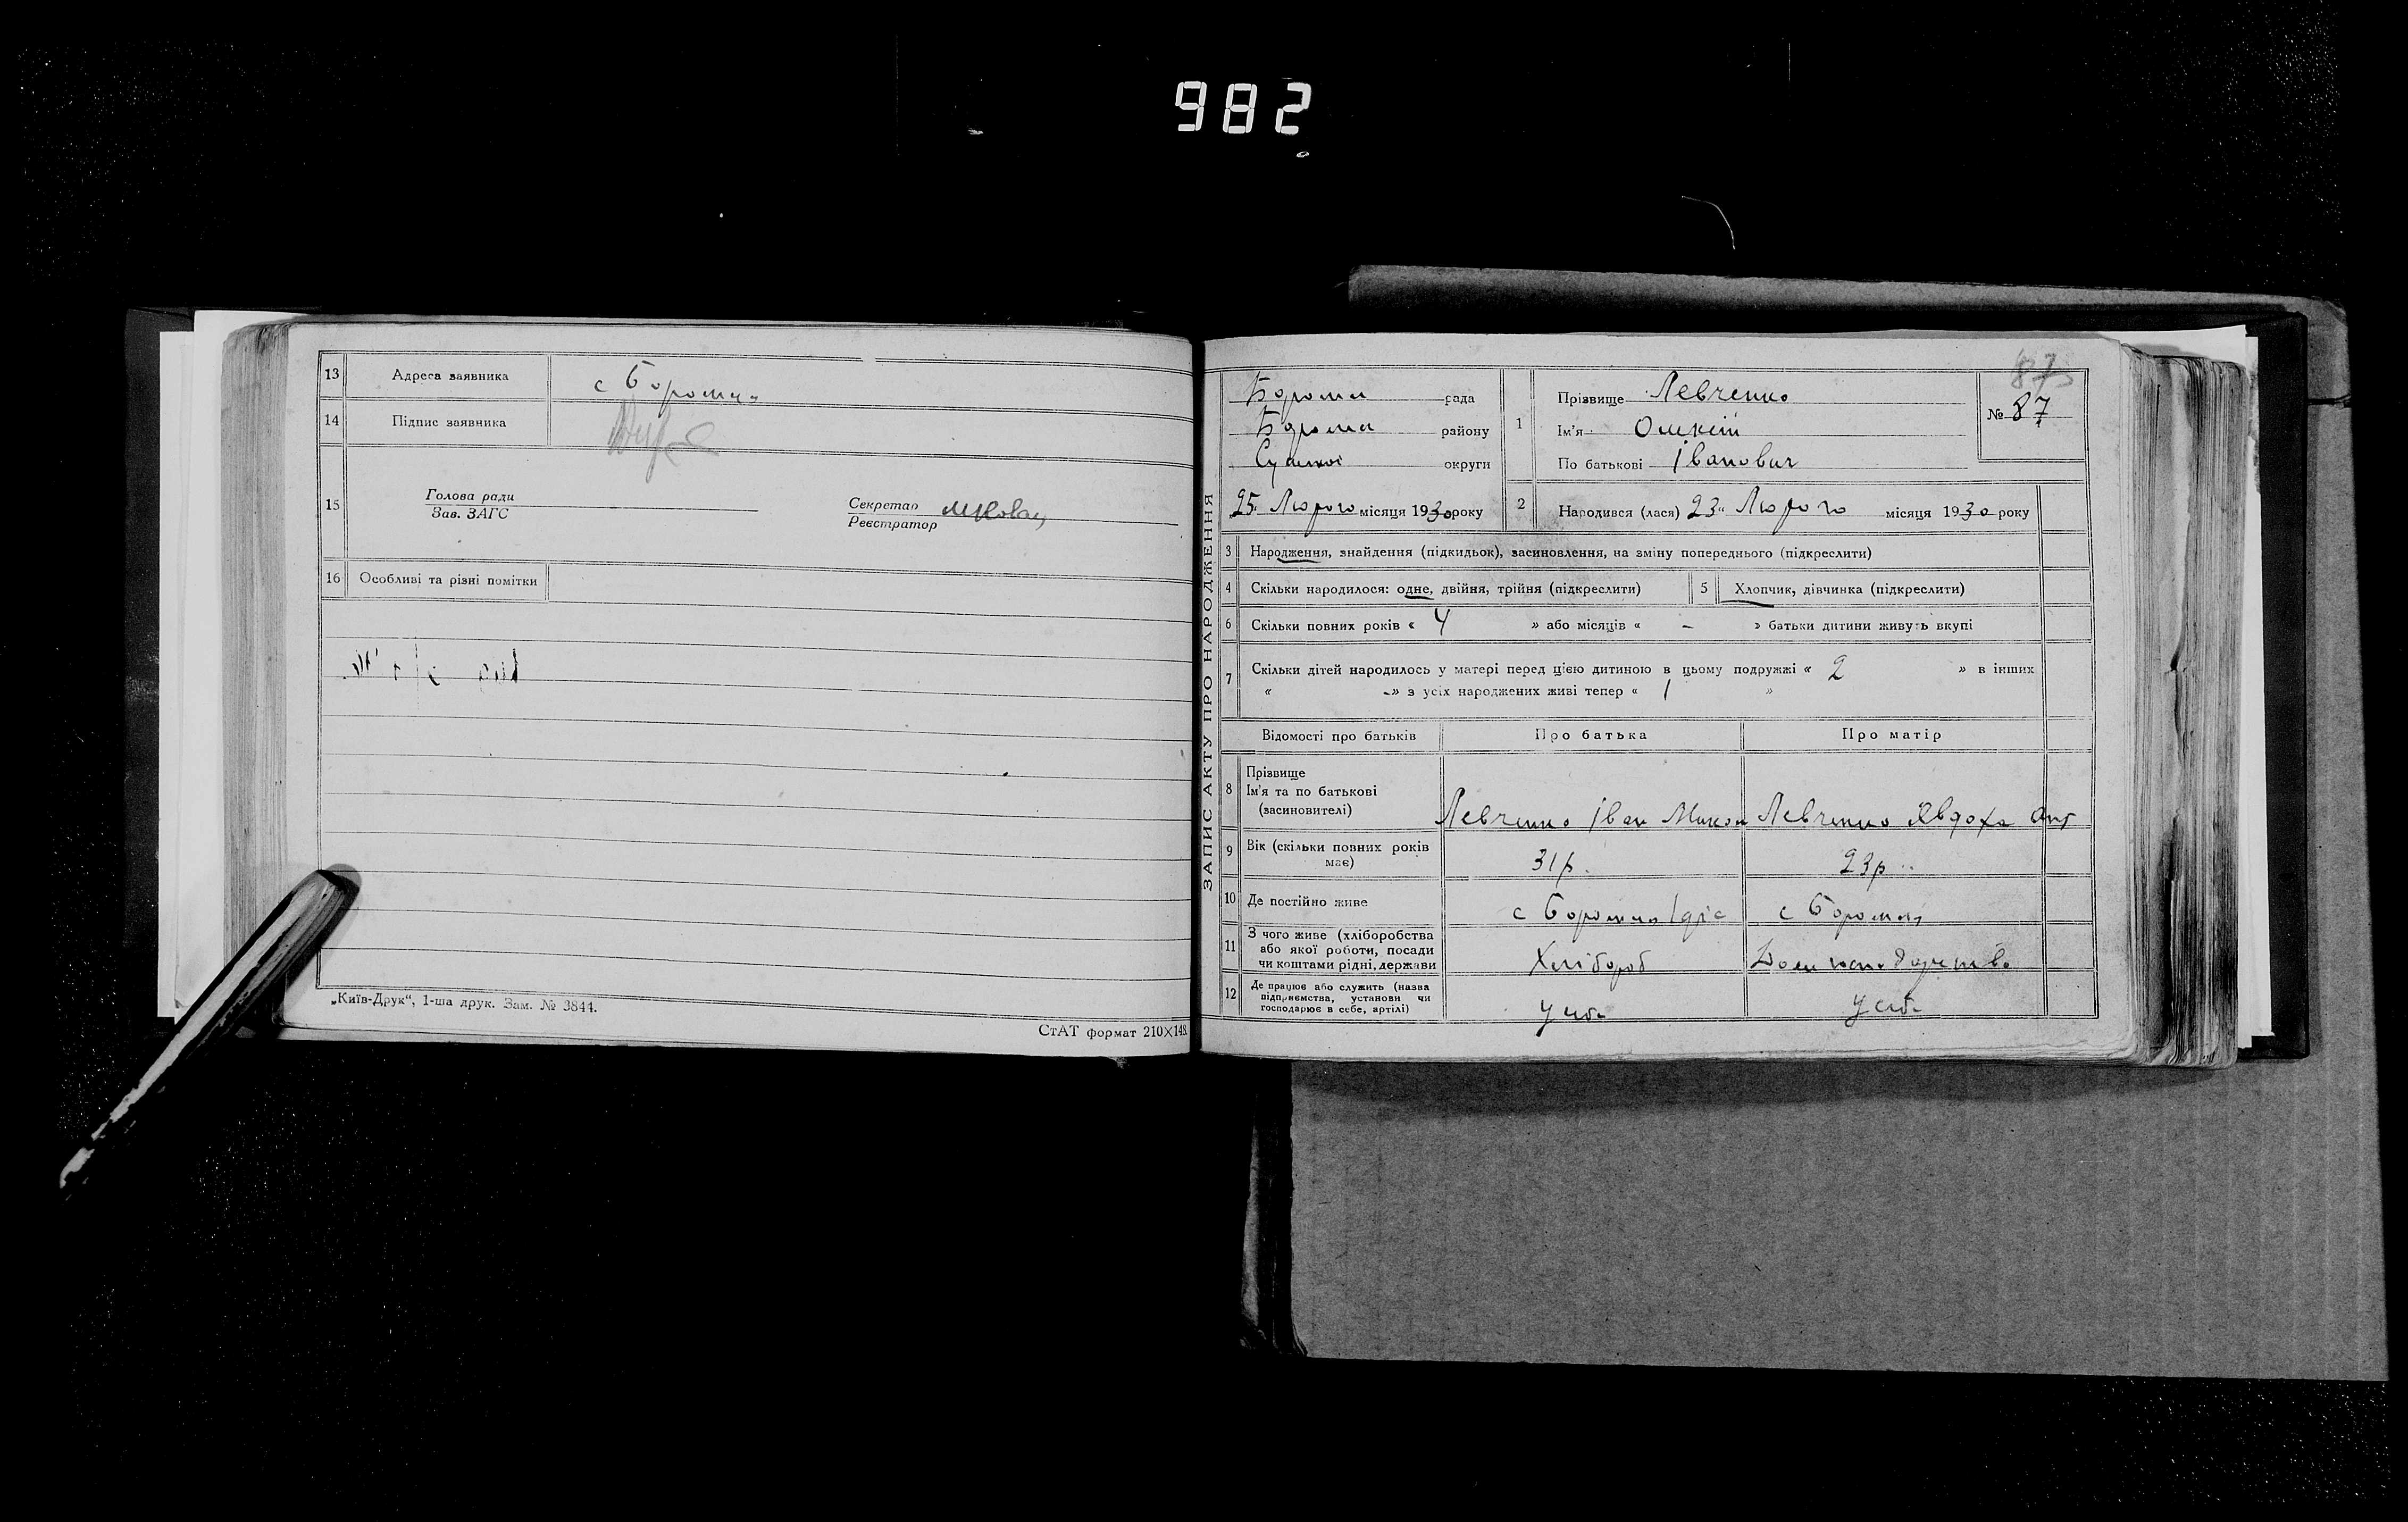 982
13 Адреса заявника с Боромля
14 Підпис заявника
15 Голова ради
Зав. ЗАГС
Секретар
Реєстратор
16 Особливі та різні помітки
„Київ-Друк“, 1-ша друк. Зам. № 3844.
СтАТ формат 210×148.
ЗАПИС АКТУ ПРО НАРОДЖЕННЯ
87
Боромля рада
Боромля району
Сумської округи
25 Лютого місяця 1930 року
1 Прізвище Левченко
Ім'я Олексій
По батькові Іванович
№ 87
2 Народився (лася) 23 Лютого місяця 1930 року
3 Народження, знайдення (підкидьок), засиновлення, на зміну попереднього (підкреслити)
4 Скільки народилося: одне, двійня, трійня (підкреслити)
5 Хлопчик, дівчинка (підкреслити)
6 Скільки повних років « 4 » або місяців « – » батьки дитини живуть вкупі
7 Скільки дітей народилось у матері перед цією дитиною в цьому подружжі « 2 » в інших
« –» з усіх народжених живі тепер « 1 »
Відомості про батьків Про батька Про матір
8 Прізвище
Ім'я та по батькові
(засновителі)
Левченко Іван Микол Левченко Явдоха
9 Вік (скільки повних років
має)
31р. 23р.
10 Де постійно живе с Боромля с Боромля
11 З чого живе (хліборобства
або якої роботи, посади
чи коштами рідні, держави
Хлібороб Дом господарство
12 Де працює або служить (назва
підприємства, установи чи
господарює в себе, артілі)
У себе У себе